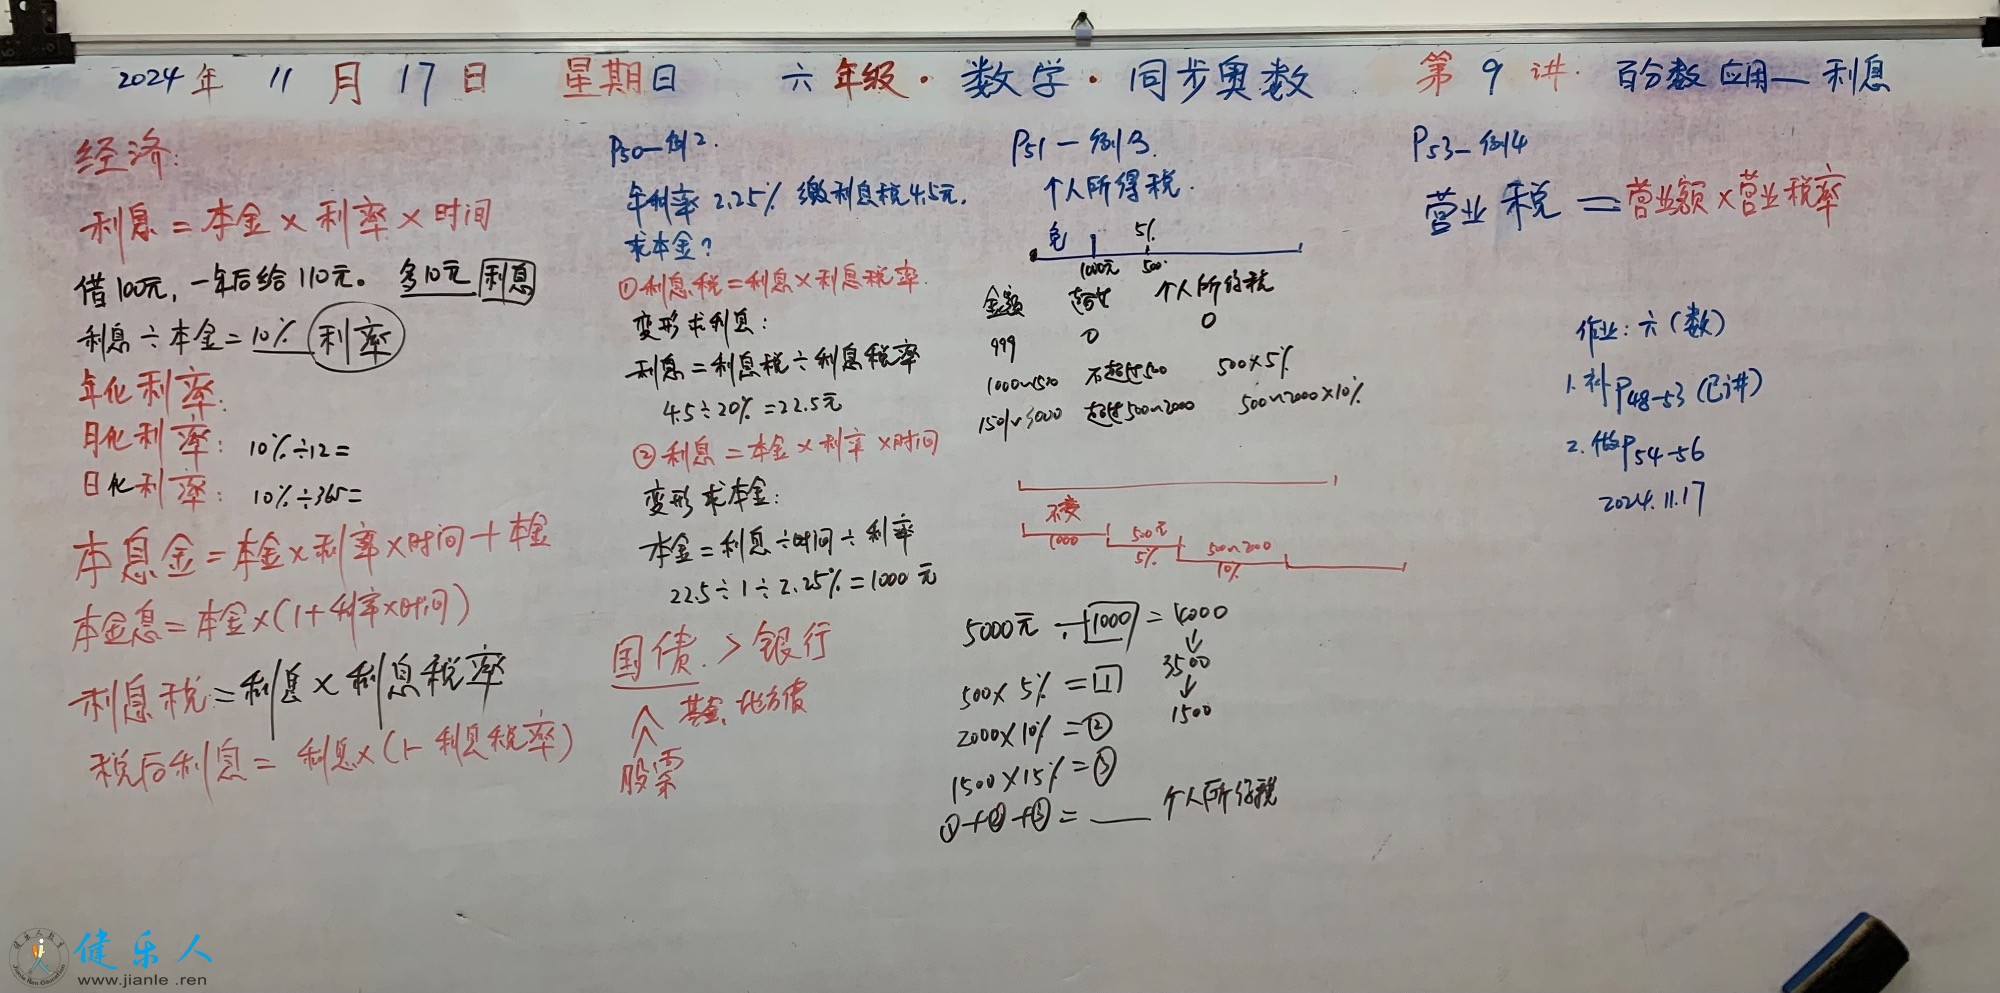 2024年 11月17日 星期日 六年级·数学·同步奥数 第9讲· 百分数应用—利息
经济:
利息=本金×利率×时间
借100元,一年后给110元。多10元 利息
利息÷本金=10% 利率
年化利率:
月化利率: 10%÷12=
日化利率: 10%÷365=
本息金=本金×利率×时间+本金
本金息=本金×(1+利率×时间)
利息税=利息×利息税率
税后利息=利息×(1-利息税率)
P50—例2.
年利率2.25% 缴利息税4.5元.
求本金?
①利息税=利息×利息税率.
变形求利息:
利息=利息税÷利息税率
4.5÷20%=22.5元
②利息=本金×利率×时间
变形求本金:
本金=利息÷时间÷利率
22.5÷1÷2.25%=1000元
国债.>银行
基金、地方债
股票
P51—例3.
个人所得税.
免 5%
1000元 500.
金额 超过 个人所得税
999 0 0
1000~1500 不超过500 500×5%
1501~3000 超过500~2000 500~2000×10%
不变
1000 500元 500~2000
5% 10%
5000元-1000=4000
3500
500×5%=1
1500
2000×10%=②
1500×15%=③
①+②+③=___个人所得税
P53—例4
营业税=营业额×营业税率
作业:六(数)
1.补P48-53(已讲)
2.做P54-56
2024.11.17
健乐人
www.jianle.ren